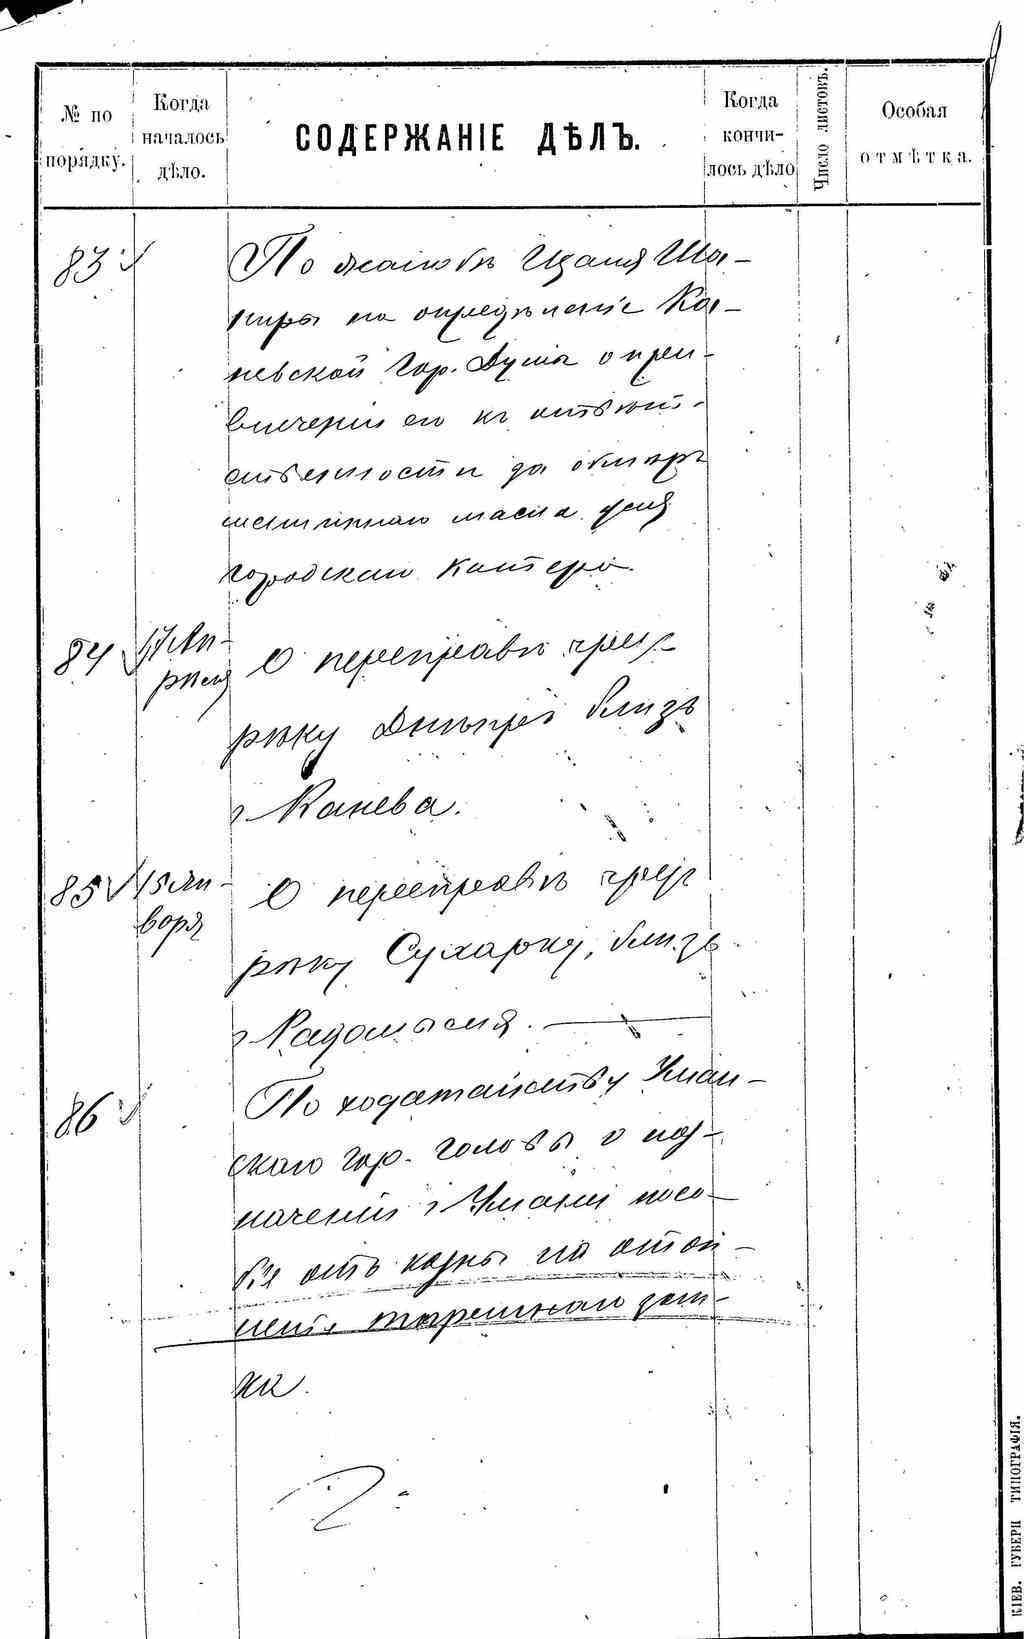 № по порядку.
Когда началось дѣло.
СОДЕРЖАНІЕ ДѢЛЪ.
Когда кончилось дѣло
Число листовъ.
Особая отмѣтка.
83
По жалобѣ Ша-
пиры на опредѣленіе Ка-
невской Гор. Думы о при-
влеченіи его къ отвѣт-
ственности за
масла для
городского
84
17 Ап-
рѣля
О переправѣ чрезъ
рѣку Днѣпръ близъ
г. Канева.
85
15 Ян-
варя
О переправѣ чрезъ
рѣку Сухарку, близъ
г. Радомысля.
86
По ходатайству Уман-
скаго гор. головы о наз-
наченіи г. Умани посо-
бія отъ казны на отоп-
леніе тюремнаго зам-
ка.
КІЕВ. ГУБЕРН ТИПОГРАФІЯ.